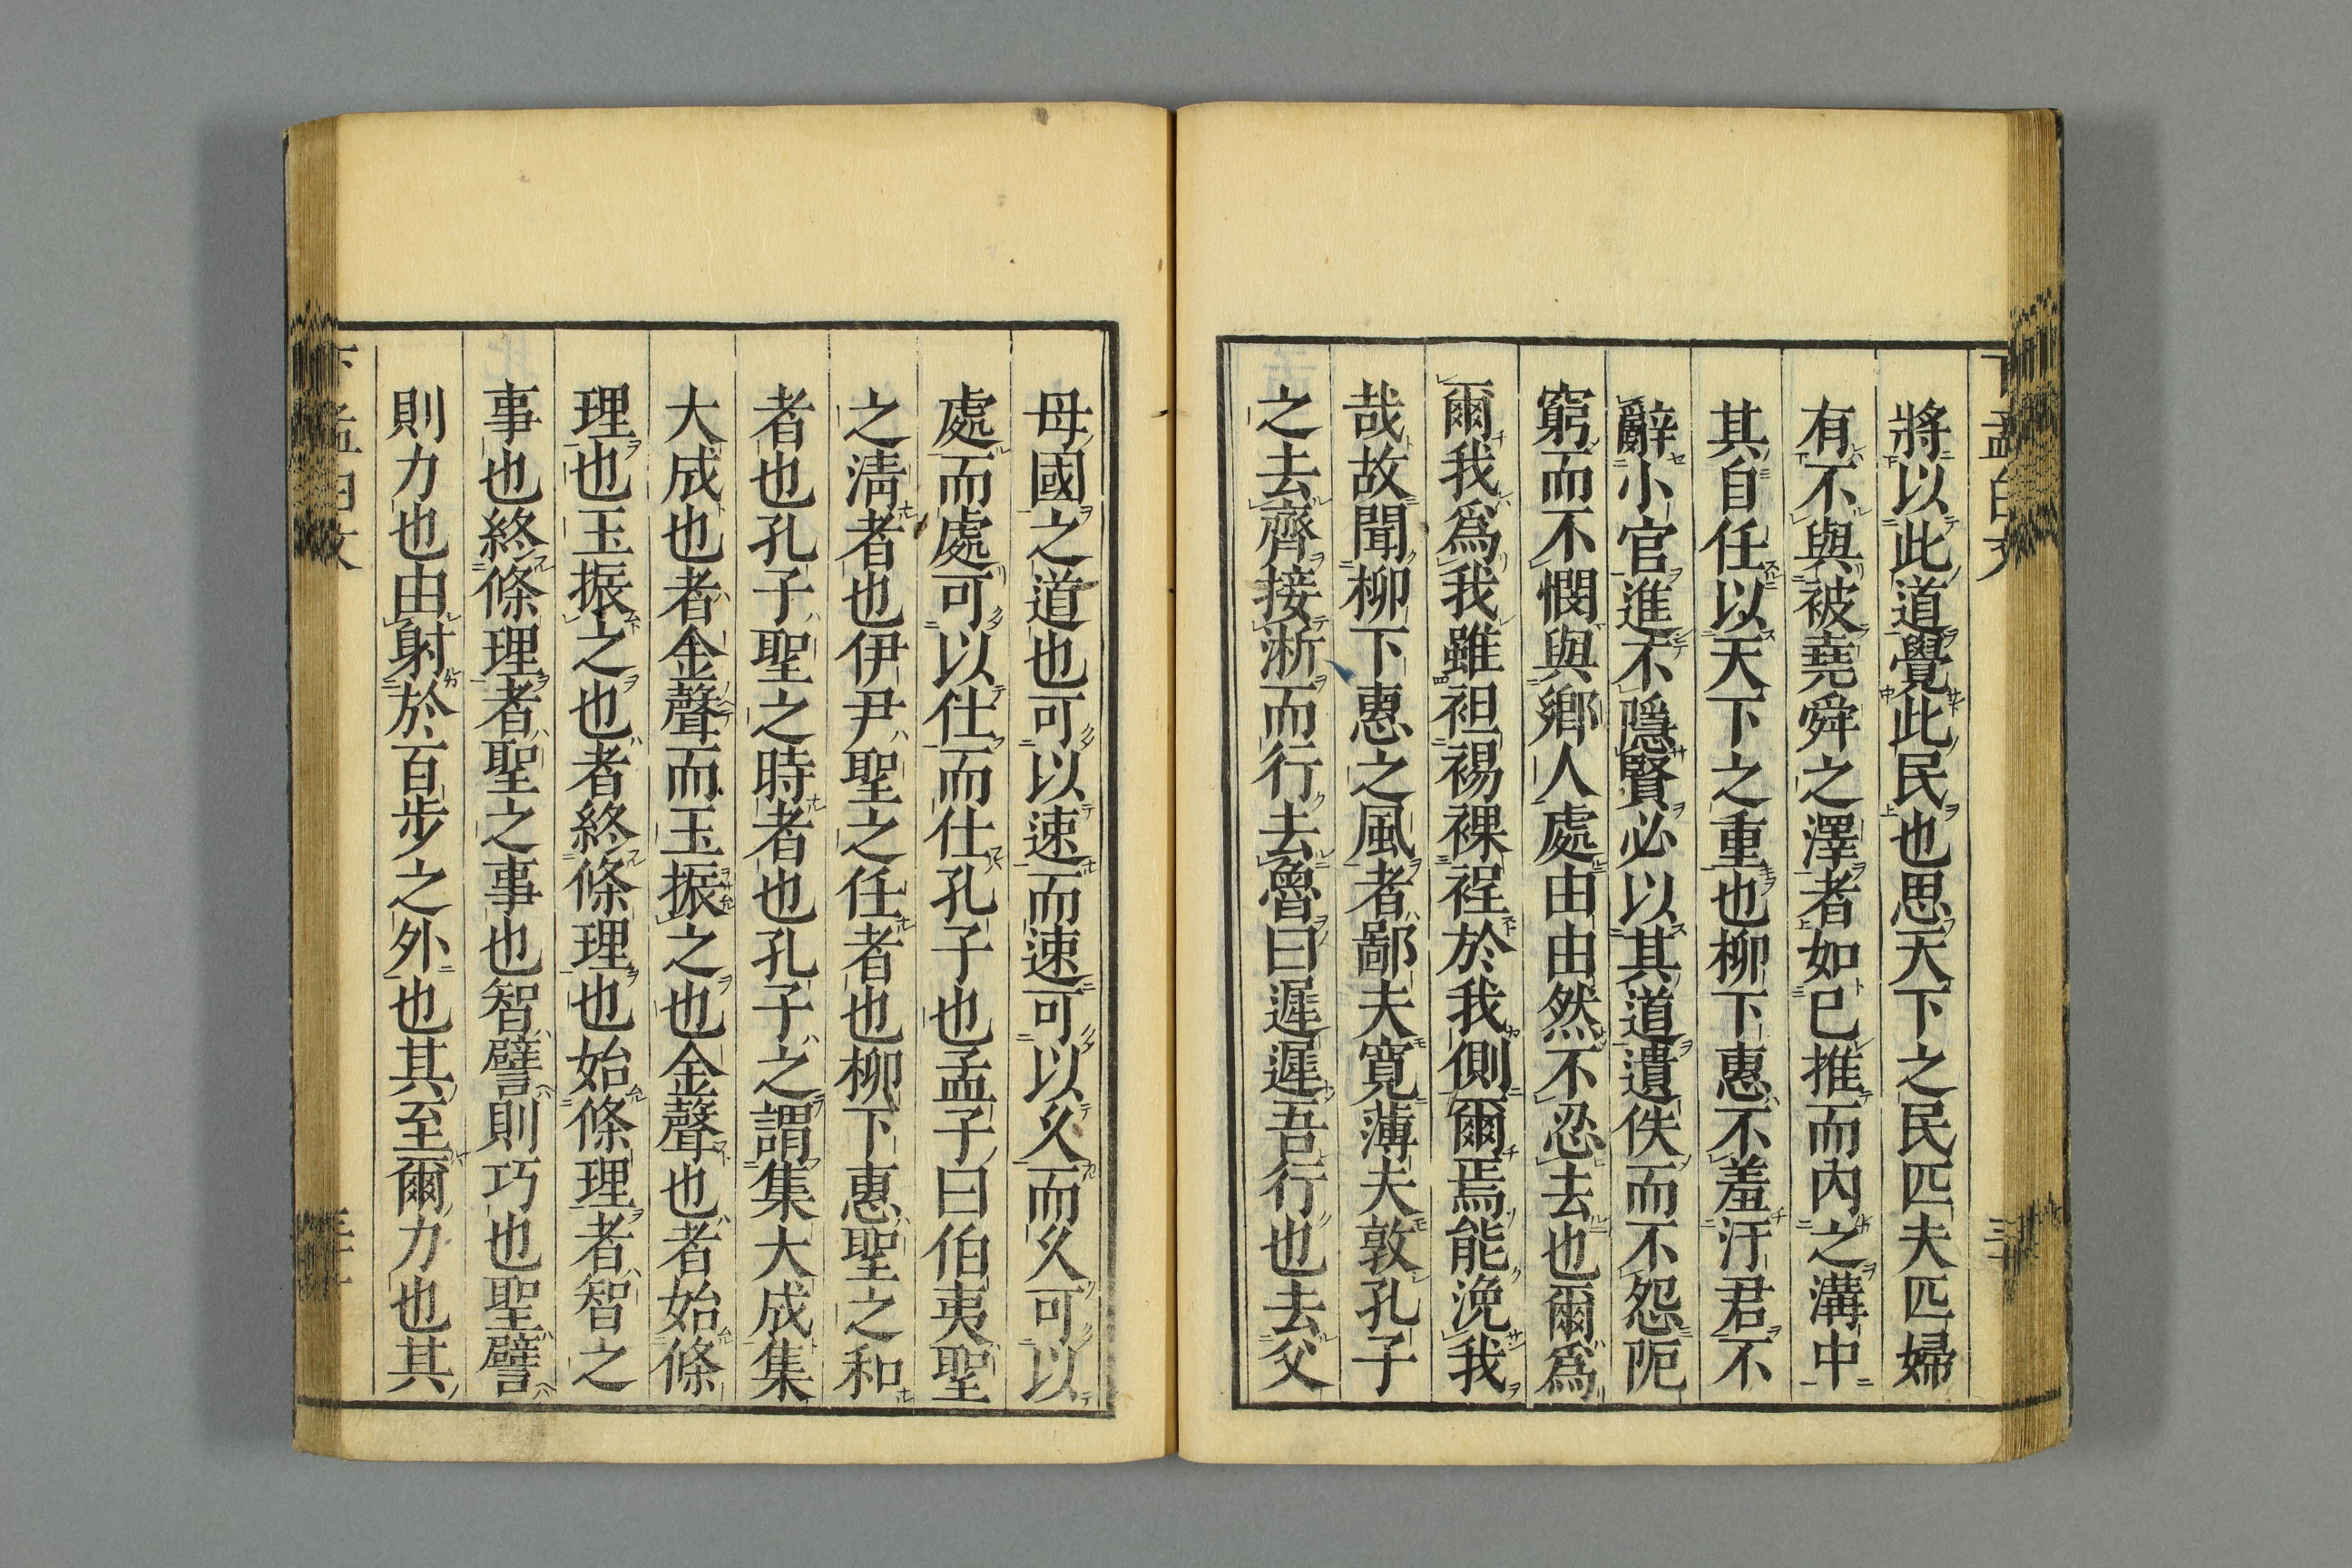 將以此道覺此民也思天下之民匹夫匹婦
有不與被堯舜之澤者如已推而內之溝中
其自任以天下之重也柳下惠不羞汙君不
辭小官進不隱賢必以其道遺佚而不怨阨
窮而不憫與鄉人處由由然不忍去也爾為
爾我為我雖袒裼裸裎於我側爾焉能浼我
哉故聞柳下惠之風者鄙夫寬薄夫敦孔子
之去齊接淅而行去魯曰遲遲吾行也去父
母國之道也可以速而速可以久而久可以
處而處可以仕而仕孔子也孟子曰伯夷聖
之清者也伊尹聖之任者也柳下惠聖之和
者也孔子聖之時者也孔子之謂集大成集
大成也者金聲而玉振之也金聲也者始條
理也玉振之也者終條理也始條理者智之
事也終條理者聖之事也智譬則巧也聖譬
則力也由射於百步之外也其至爾力也其